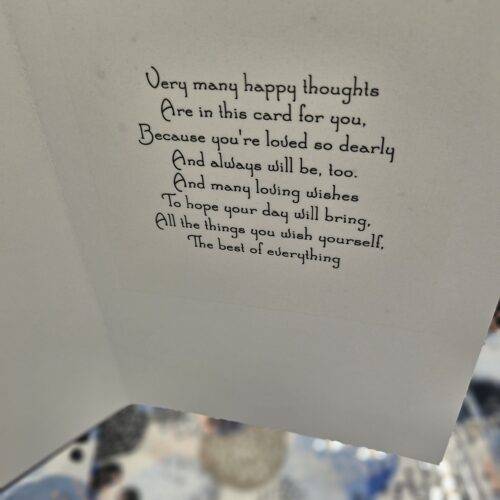 Very many happy thoughts
Are in this card for you,
Because you're loved so dearly
And always will be, too.
And many loving wishes
To hope your day will bring,
All the things you wish yourself,
The best of everything